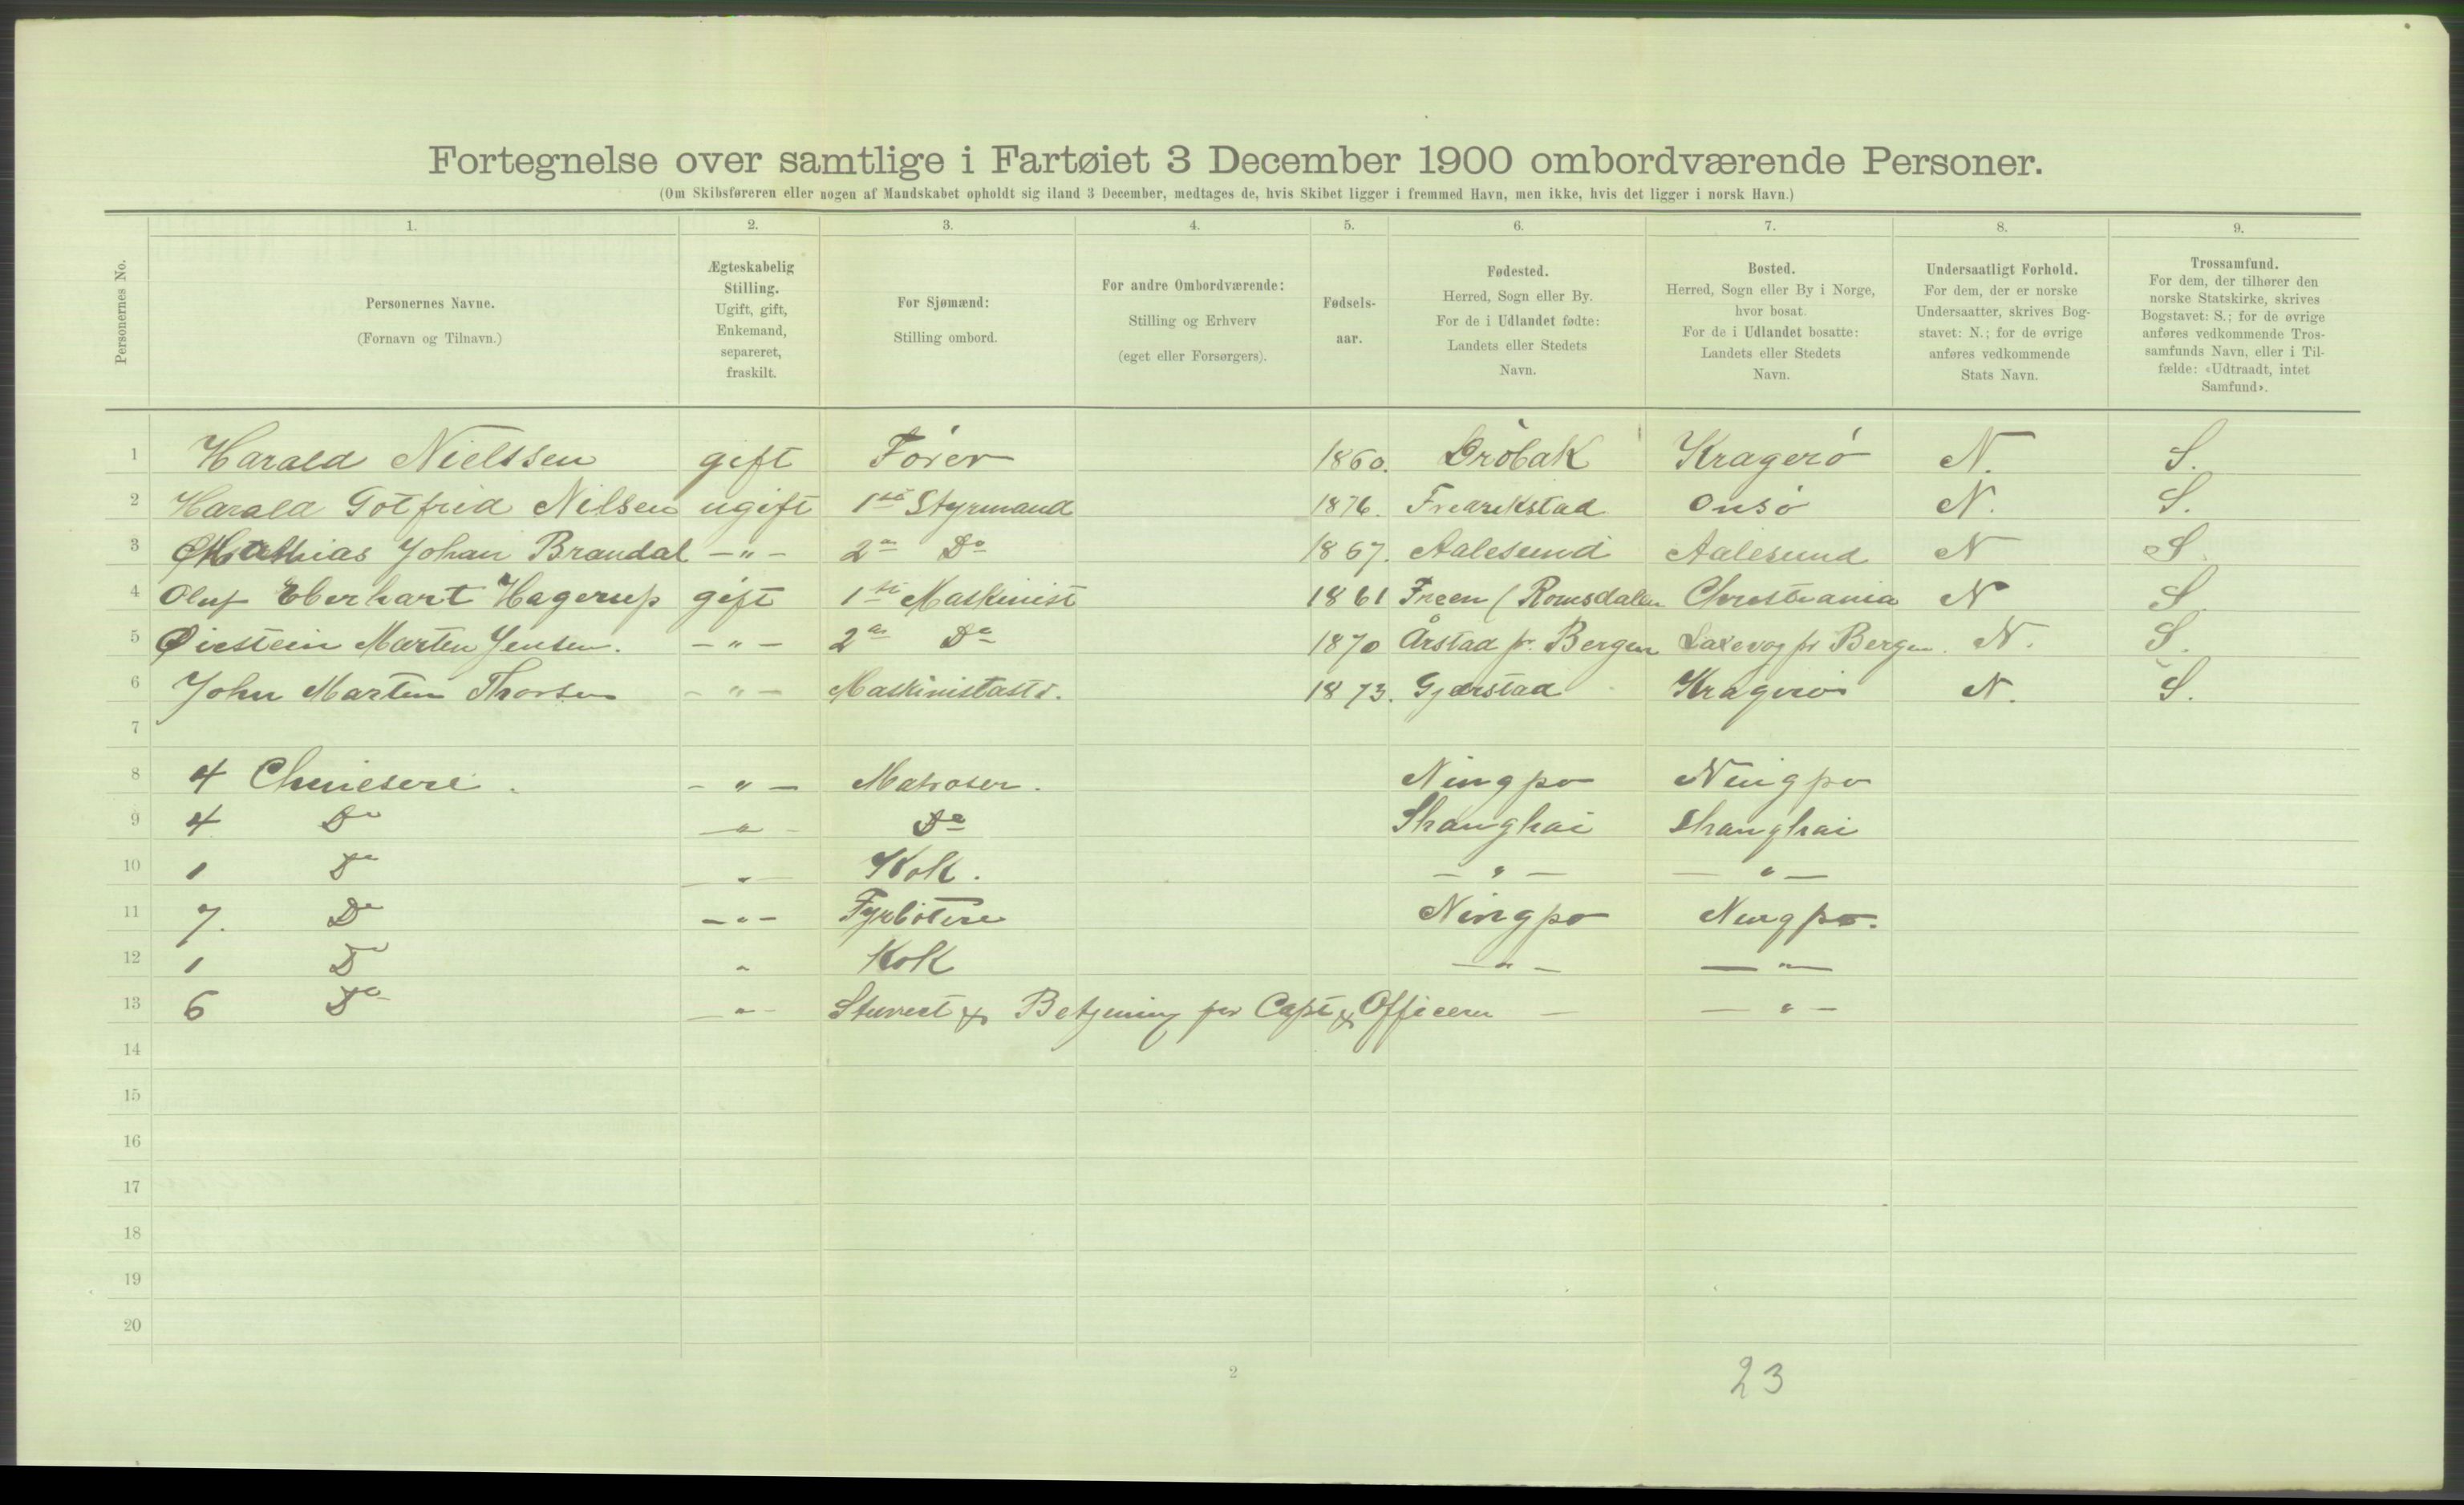 Fortegnelse over samtlige i Fartøiet 3 December 1900 ombordværende Personer.
(Om Skibsføreren eller nogen af Mandskabet opholdt sig iland 3 December, medtages de, hvis Skibet ligger i fremmed Havn, men ikke, hvis det ligger i norsk Havn.)
Personernes No.
1. 2. 3. 4. 5. 6. 7. 8. 9.
Personernes Navne.
(Fornavn og Tilnavn.)
Ægteskabelig
Stilling.
Ugift, gift,
Enkemand,
separeret,
fraskilt.
For Sjømænd:
Stilling ombord.
For andre Ombordværende:
Stilling og Erhverv
(eget eller Forsørgers).
Fødsels-
aar.
Fødested.
Herred, Sogn eller By.
For de i Udlandet fødte:
Landets eller Stedets
Navn.
Bosted.
Herred, Sogn eller By i Norge,
hvor bosat.
For de i Udlandet bosatte:
Landets eller Stedets
Navn.
Undersaatligt Forhold.
For dem, der er norske
Undersaatter, skrives Bog-
stavet: N.; for de øvrige
anføres vedkommende
Stats Navn.
Trossamfund.
For dem, der tilhører den
norske Statskirke, skrives
Bogstavet: S.; for de øvrige
anføres vedkommende Tros-
samfunds Navn, eller i Til-
fælde: «Udtraadt, intet
Samfund».
1 Harald Nielssen gift Fører 1860. Drøbak Kragerø N. S.
2 Harald Gotfrid Nilsen ugift 1ste Styrmand 1876. Fredrikstad Onsø N. S.
3 Mathias Johan Brandal — " — 2den Do 1867. Aalesund Aalesund N S
4 Oluf Eberhart Hagerup gift 1ste Maskinist 1861 Freen (Romsdalen Christiania N S
5 Øiestein Marten Jensen. — " — 2den Do 1870 Årstad pr. Bergen Laxevog pr Bergen. N. S.
6 John Marten Thorsen — " — Maskinistasts. 1873. Gjerstad Kragerø N. S.
7
8 4 Chinesere. — " — Matroser. Ningpo Ningpo
9 4 Do — " — Do Shanghai Shanghai
10 1 Do — " — Kok. — " — — " —
11 7. Do — " — Fyrbötere Ningpo Ningpo.
12 1 Do " Kok — " — — " —
13 6 Do — " — Stuert & Betjening for Capt & Officerer — — " —
14
15
16
17
18
19
20
2
23